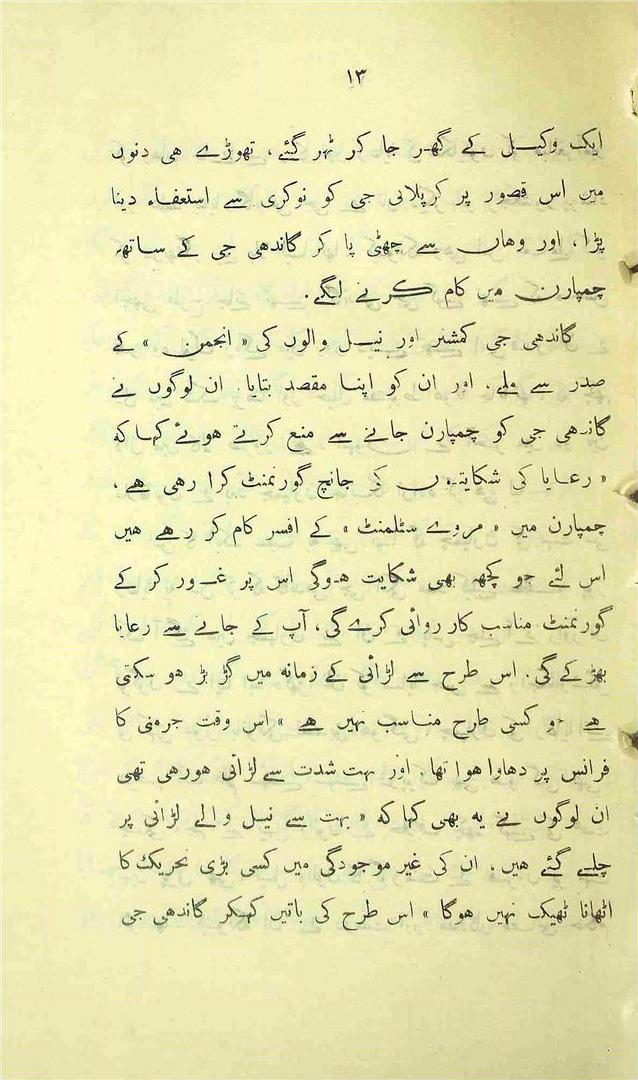 ۱۳
ایک وکیل کے گھر جا کر ٹہر گئے، تھوڑے ھی دنوں
میں اس قصور پر کرپلانی جی کو نوکری سے استعفاء دینا
پڑا، اور وھاں سے چھٹی پا کر گاندھی جی کے ساتھ
چمپارن میں کام کرنے لگے۔
گاندھی جی کمشنر اور نیل والوں کی « انجمن » کے
صدر سے ملے، اور ان کو اپنا مقصد بتایا۔ ان لوگوں نے
گاندھی جی کو چمپارن جانے سے منع کرتے ہوئے کہا کہ
« رعایا کی شکایتوں کی جانچ گورنمنٹ کرا رھی ھے،
چمپارن میں « سروے سٹلمنٹ » کے افسر کام کر رھے ھیں
اس لئے جو کچھ بھی شکایت ھوگی اس پر غور کر کے
گورنمنٹ مناسب کار روائی کرے گی، آپ کے جانے سے رعایا
بھڑ کے گی۔ اس طرح سے لڑائی کے زمانہ میں گڑ بڑ ھو سکتی
ھے جو کسی طرح مناسب نہیں ھے » اس وقت جرمنی کا
فرانس پر دھاوا ھوا تھا، اور بہت شدت سے لڑائی ھورھی تھی
ان لوگوں نے یہ بھی کہا کہ « بہت سے نیل والے لڑائی پر
چلے گئے ھیں، ان کی غیر موجودگی میں کسی بڑی تحریک کا
اٹھانا ٹھیک نہیں ھوگا » اس طرح کی باتیں کہکر گاندھی جی